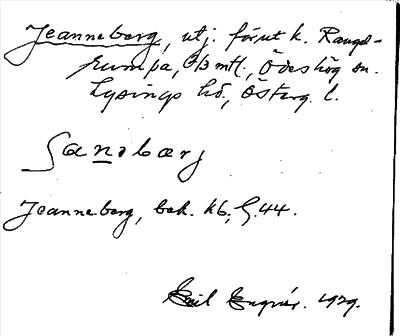 Jeanneberg, utj. förut k. Raugd-
rumpa, 1/3 mtl., Ödeshög sn.
Lysings hd., Österg. l.
Jeanneberg, bek. kb., G.44.
Emil Engnér. 1929.